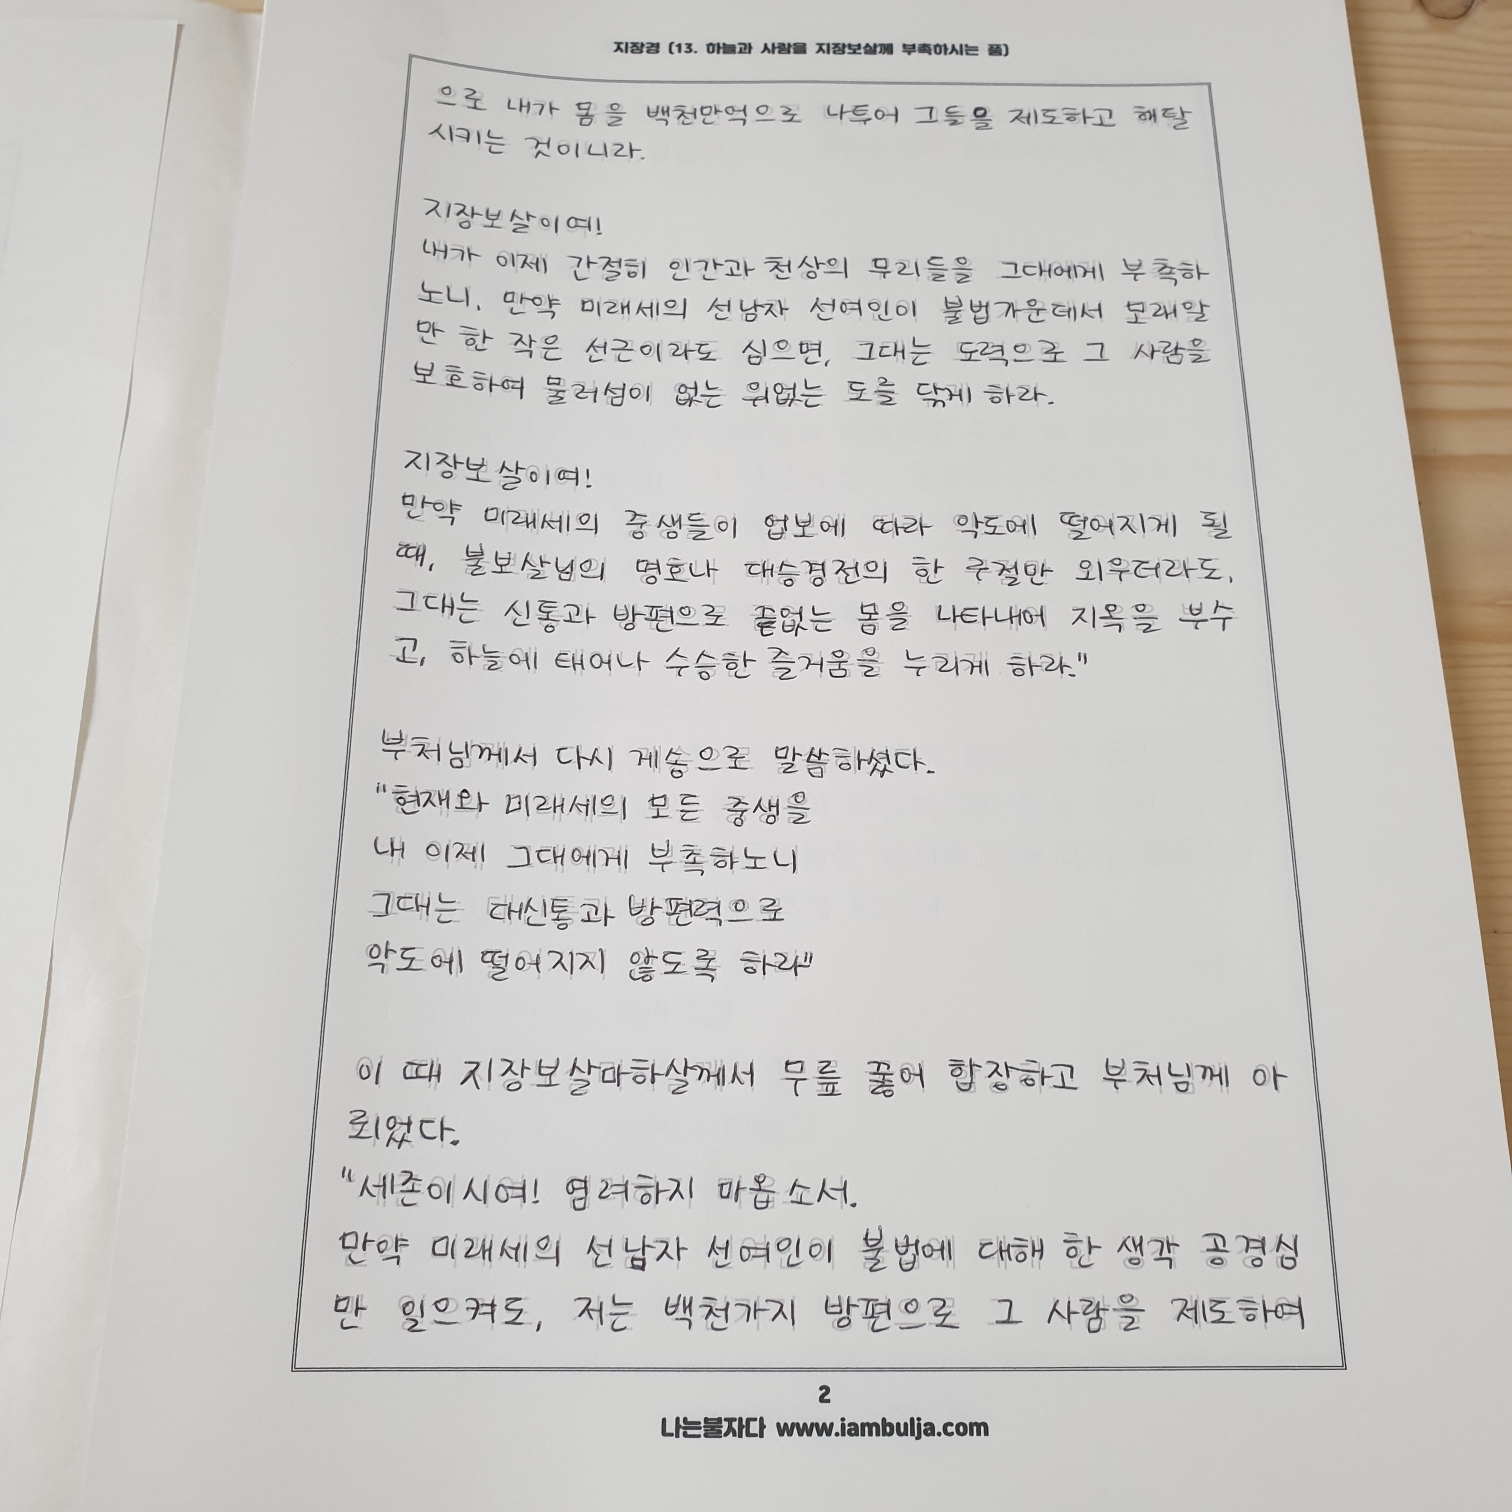 지장경 (13. 하늘과 사람을 지장보살께 부촉하시는 품)
으로 내가 몸을 백천만억으로 나투어 그들을 제도하고 해탈
시키는 것이니라.
지장보살이여!
내가 이제 간절히 인간과 천상의 무리들을 그대에게 부촉하
노니, 만약 미래세의 선남자 선여인이 불법가운데서 모래알
만 한 작은 선근이라도 심으면, 그대는 도력으로 그 사람을
보호하여 물러섬이 없는 위없는 도를 닦게 하라.
지장보살이여!
만약 미래세의 중생들이 업보에 따라 악도에 떨어지게 될
때, 불보살님의 명호나 대승경전의 한 구절만 외우더라도,
그대는 신통과 방편으로 끝없는 몸을 나타내어 지옥을 부수
고, 하늘에 태어나 수승한 즐거움을 누리게 하라."
부처님께서 다시 게송으로 말씀하셨다.
"현재와 미래세의 모든 중생을
내 이제 그대에게 부촉하노니
그대는 대신통과 방편력으로
악도에 떨어지지 않도록 하라"
이 때 지장보살마하살께서 무릎 꿇어 합장하고 부처님께 아
뢰었다.
"세존이시여! 염려하지 마옵소서.
만약 미래세의 선남자 선여인이 불법에 대해 한 생각 공경심
만 일으켜도, 저는 백천가지 방편으로 그 사람을 제도하여
2
나는불자다 www.iambulja.com